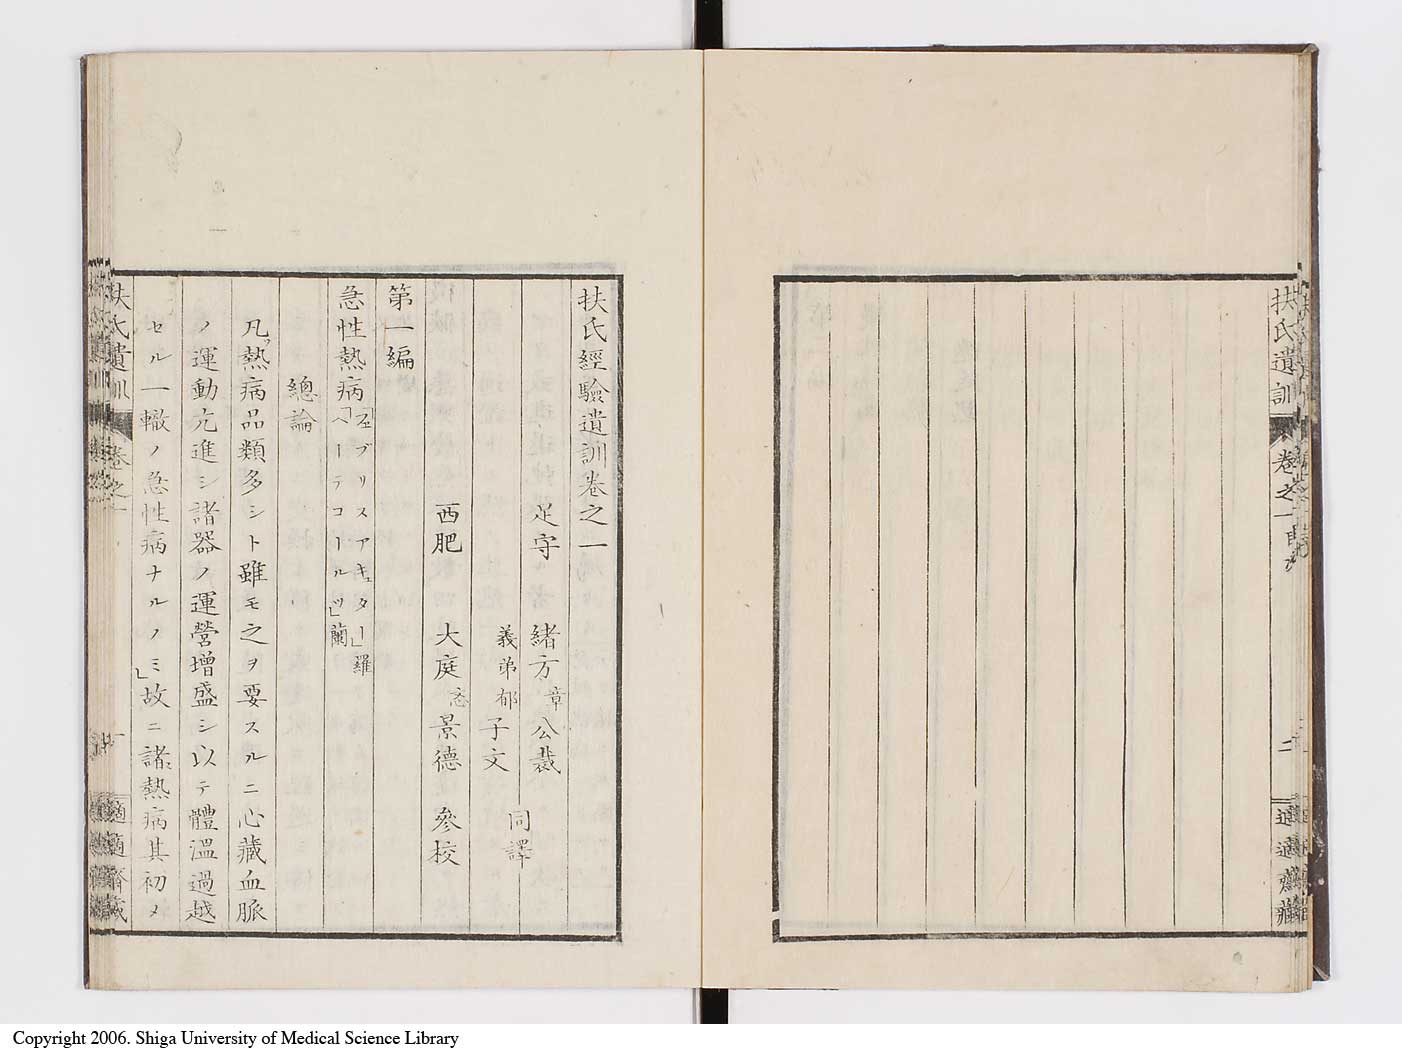 扶氏遺訓 卷之一 目次 二 適適齋藏
扶氏經驗遺訓卷之一
足守 緒方章公裁
義弟郁子文 同譯
西肥 大庭忞景德 參校
第一編
急性熱病「フェブリスアキュタ―」羅
「ヘーテコールツ」蘭
總論
凡ソ熱病品類多シト雖モ之ヲ要スルニ心藏血脈
ノ運動亢進シ諸器ノ運營增盛シ以テ體溫過越
セル一轍ノ急性病ナルノミ」故ニ諸熱病其初メ
扶氏遺訓 卷之一 一 適適齋藏
Copyright 2006. Shiga University of Medical Science Library